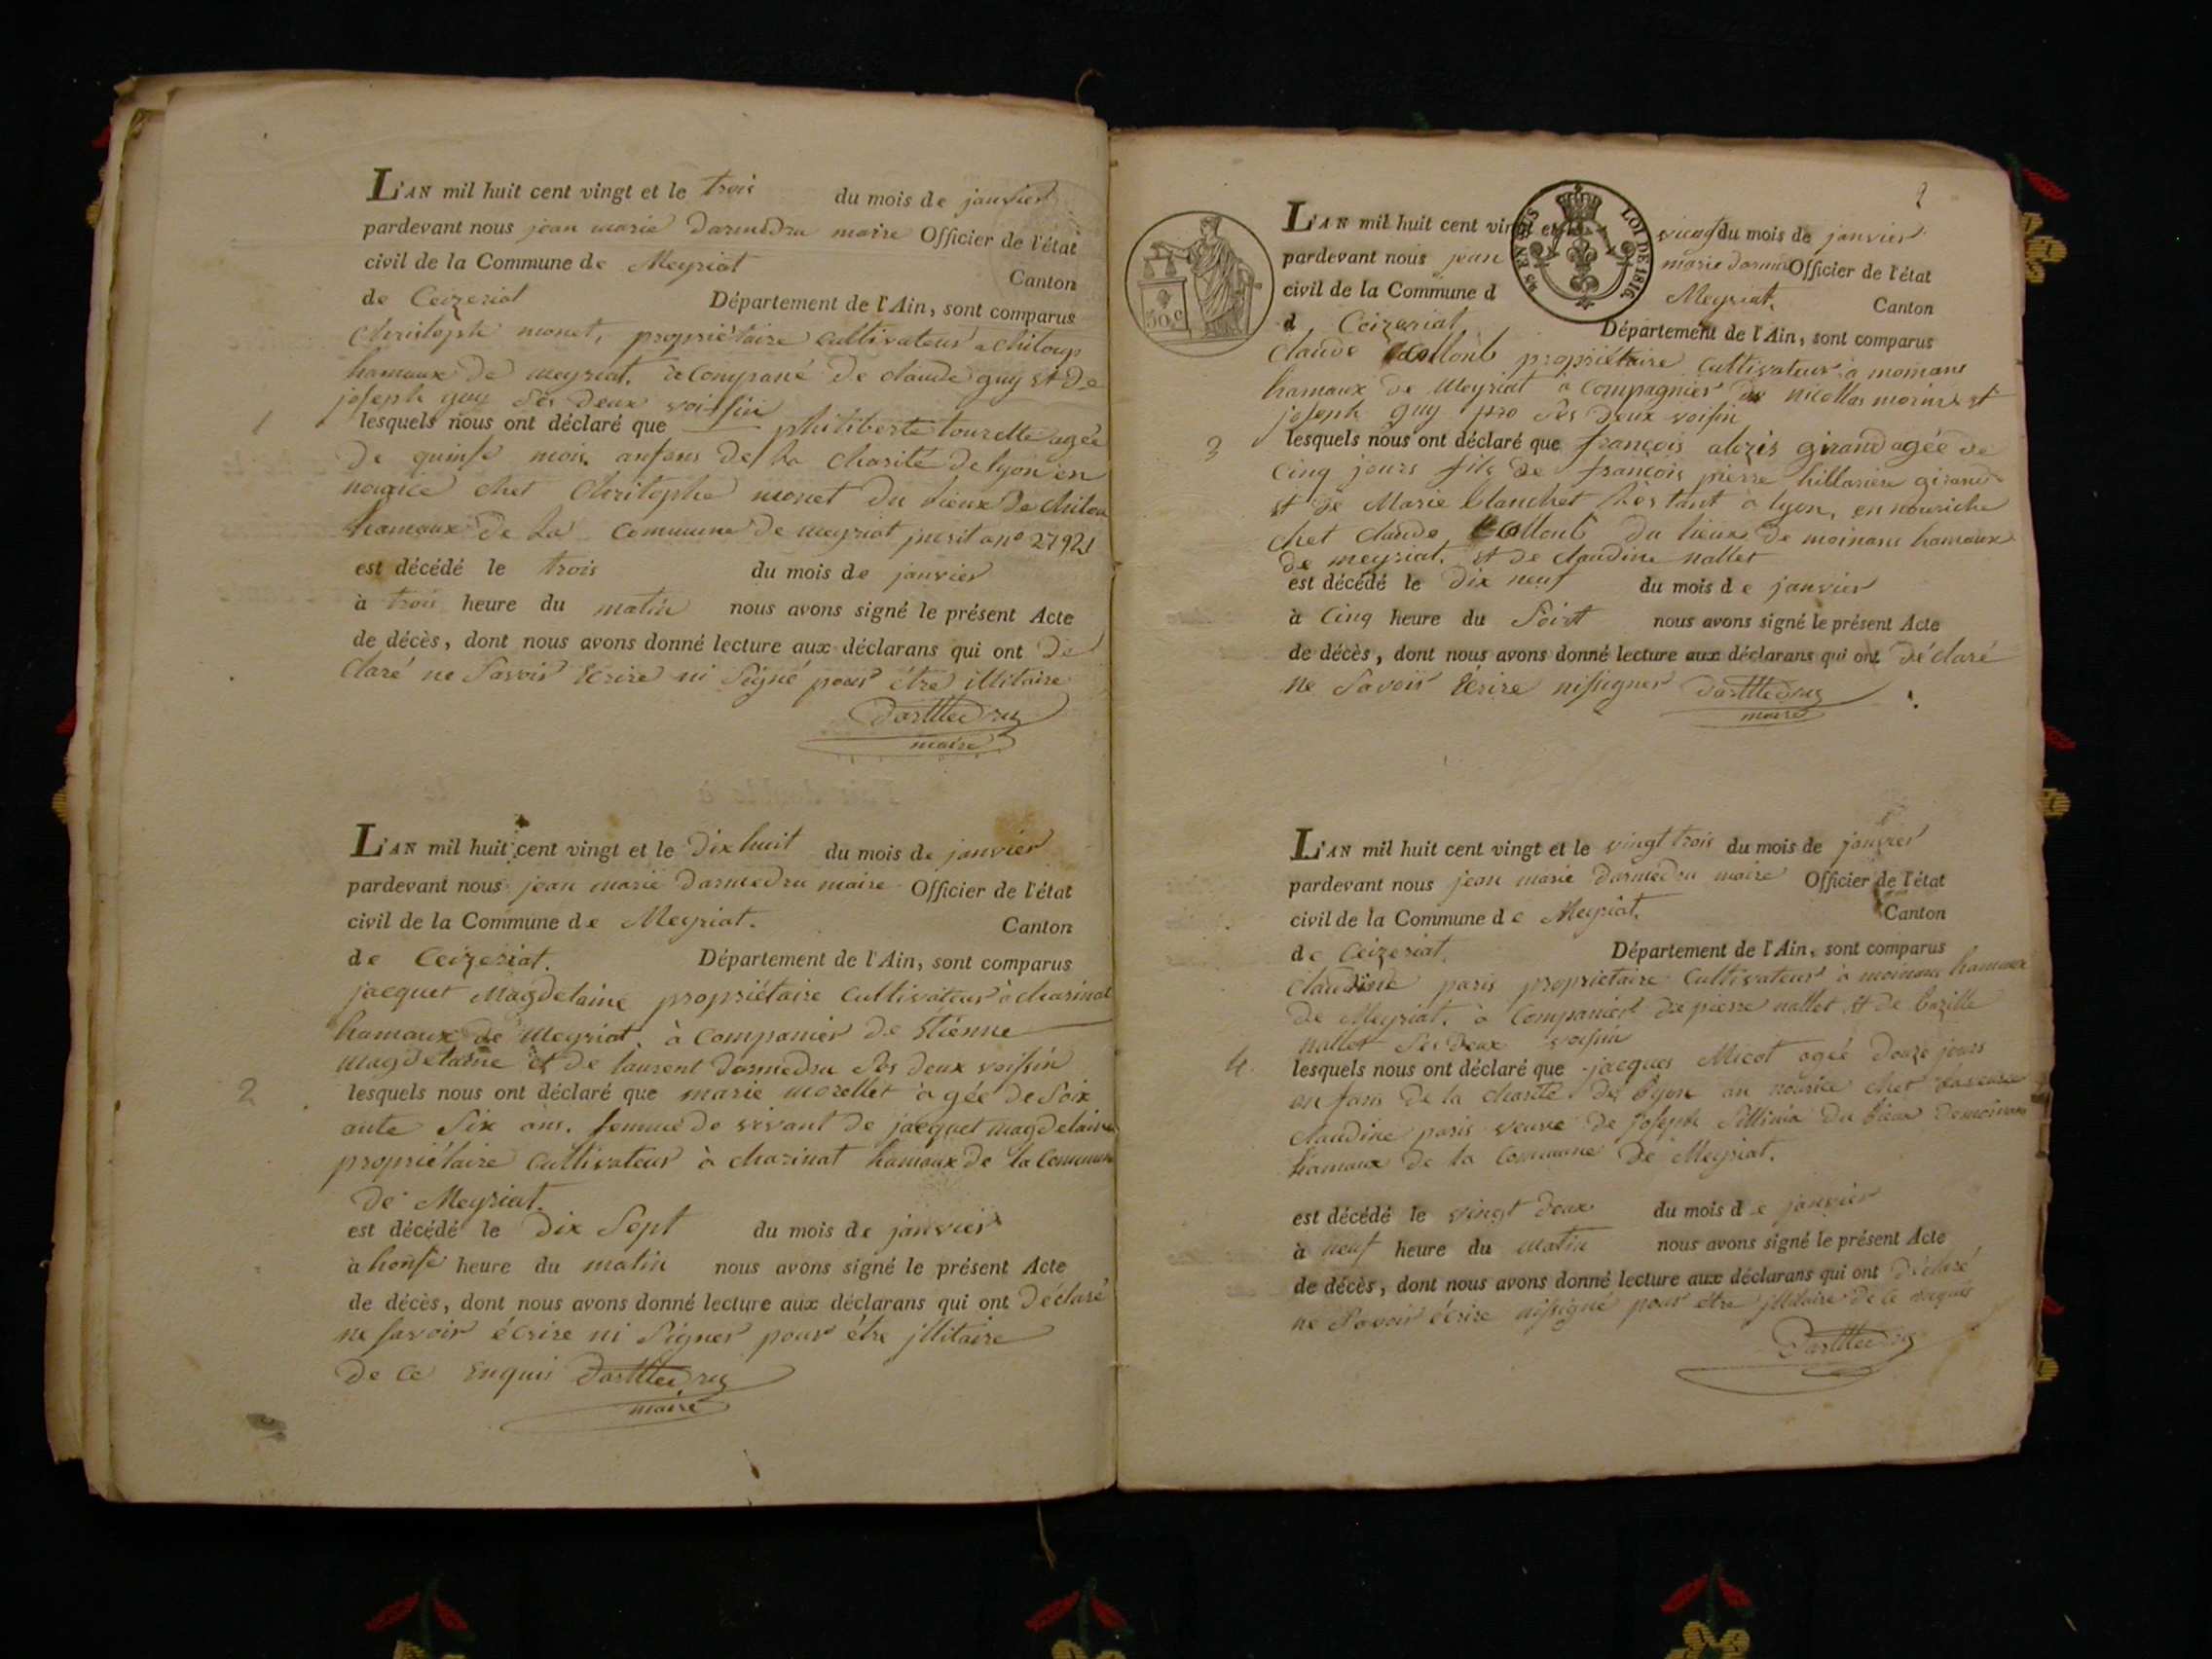 L'AN mil huit cent vingt et le trois du mois de janvier
pardevant nous jean marie darmedru maire Officier de l'état
civil de la Commune de Meyriat Canton
de Ceizeriat Département de l'Ain, sont comparus
christophe monet, propriétaire cultivateur a chiloup
hamaux de meyriat. acompané de claude guy et de
joseph guy ses deux voissin
1
lesquels nous ont déclaré que philiberte tourette agée
de quinse mois. anfans de la charité de lyon en
chet christophe monet du lieux de chilou
hamaux de la commune de meyriat no 27921
est décédé le trois du mois de janvier
à trois heure du matin nous avons signé le présent Acte
de décès, dont nous avons donné lecture aux déclarans qui ont de
claré ne savoir Ecrire ni Signé pour être illitaire
darmedru
maire
L'AN mil huit cent vingt et le dix huit du mois de janvier
pardevant nous jean marie darmedru maire Officier de l'état
civil de la Commune de Meyriat. Canton
de Ceizeriat. Département de l'Ain, sont comparus
jacquet Magdelaine propriétaire cultivateur à charinat
hamaux de Meyriat. à companier de Etienne
magdelaine et de laurent darmedru ses deux voissin
2
lesquels nous ont déclaré que marie morellet àgée de Soix
ante Six ans. femme de vivant de jacquet magdelaine
propriétaire cultivateur à charinat hamaux de la commune
de Meyriat.
est décédé le dix Sept du mois de janvier
à honse heure du matin nous avons signé le présent Acte
de décès, dont nous avons donné lecture aux déclarans qui ont déclaré
ne savoir écrire ni Signer pour être jllitaire
de ce Enquis darmedru
maire
2
50 c
EN SUS LOI DE 1816
L'AN mil huit cent vingt et le vingt du mois de janvier
pardevant nous jean marie darmedru Officier de l'état
civil de la Commune d Meyriat. Canton
d Ceizeriat Département de l'Ain, sont comparus
claude Collont propriétaire cultivateur à momans
hamaux de Meyriat a compagnier de nicollas et
joseph guy ses deux voisin
3
lesquels nous ont déclaré que françois alexis girand agée de
cinq jours fils de françois pierre hillariere girand
et de Marie blanchet à lyon, en nouriche
chet claude Collont du lieux de moinans hamaux
de meyriat. et de claudine nallet
est décédé le dix neuf du mois de janvier
à Cinq heure du Soirt nous avons signé le présent Acte
de décès, dont nous avons donné lecture aux déclarans qui ont déclaré
ne Savoir Ecrire nisigner darmedru
maire
L'AN mil huit cent vingt et le vingt trois du mois de janvier
pardevant nous jean marie darmedru maire Officier de l'état
civil de la Commune de Meyriat. Canton
de Ceizeriat. Département de l'Ain, sont comparus
claudine paris propriétaire cultivateur à moinans hamaux
de Meyriat. à companier de pierre nallet et de bazille
nallet ses deux voissin
4
lesquels nous ont déclaré que jacques Micot agée douze jours
anfans de la charité de Lyon an nourice chet
claudine paris veuve de joseph du lieux de moinans
hamaux de la commune de Meyriat.
est décédé le vingt deux du mois de janvier
à neuf heure du matin nous avons signé le présent Acte
de décès, dont nous avons donné lecture aux déclarans qui ont déclaré
ne savoir écrire nisigné pour être jllitaire de ce
darmedru